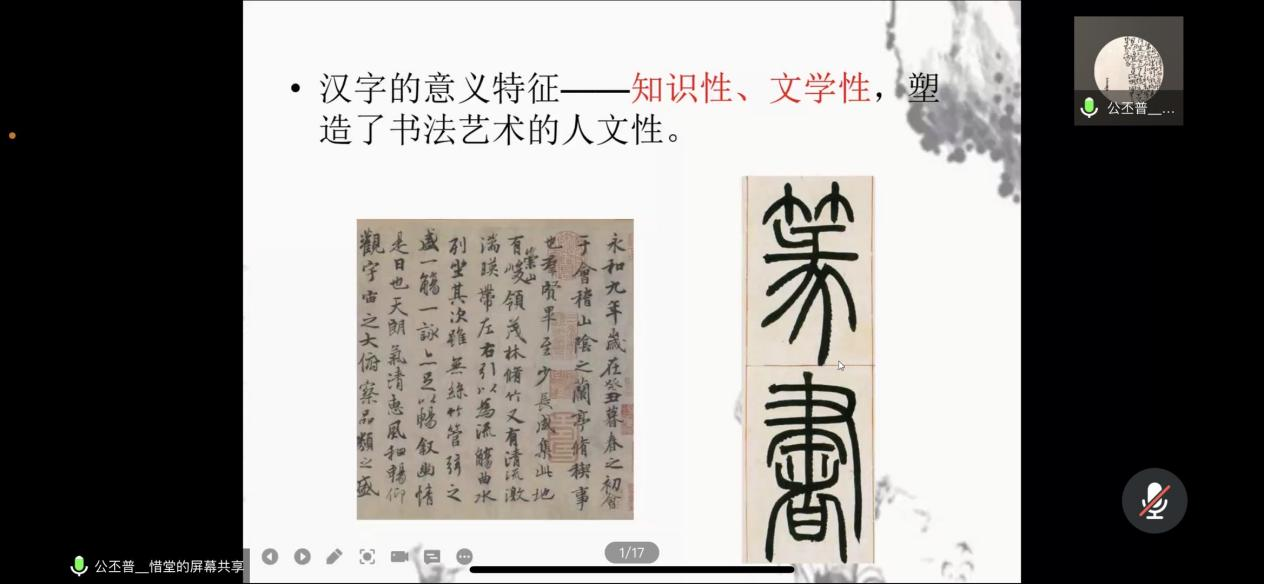 • 汉字的意义特征——知识性、文学性，塑
造了书法艺术的人文性。
永和九年歲在癸丑暮春之初會
于會稽山陰之蘭亭脩稧事
也羣賢畢至少長咸集此地
有崇山峻領茂林脩竹又有清流激
湍暎帶左右引以為流觴曲水
列坐其次雖無絲竹管弦之
盛一觴一詠亦足以暢叙幽情
是日也天朗氣清惠風和暢仰
觀宇宙之大俯察品類之盛
篆
書
公丕普__...
1/17
公丕普__惜堂的屏幕共享